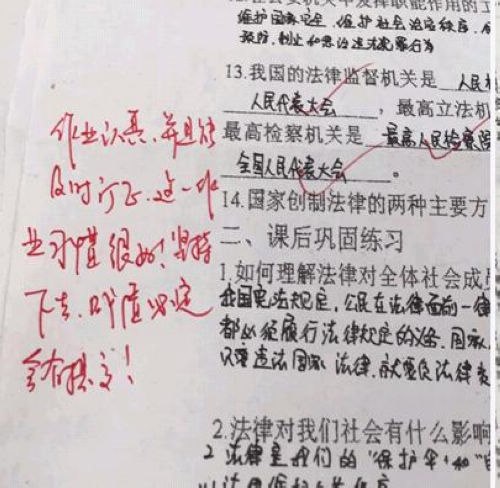 维护国家安全,维护社会治安秩序,
预防、制止和惩治违法犯罪行为
13.我国的法律监督机关是 人民
人民代表大会,最高立法机
最高检察机关是 最高人民检察院
全国人民代表大会。
14.国家创制法律的两种主要方
二、课后巩固练习
1.如何理解法律对全体社会成员
我国宪法规定,公民在法律面前一律
都必须履行法律规定的义务,国家
只要违法国家法律,就要负法律责
2.法律对我们社会有什么影响
2 法律是我们的“保护伞”和“
作业认真,并且能
及时订正,这一作
业习惯很好!坚持
下去,
会有